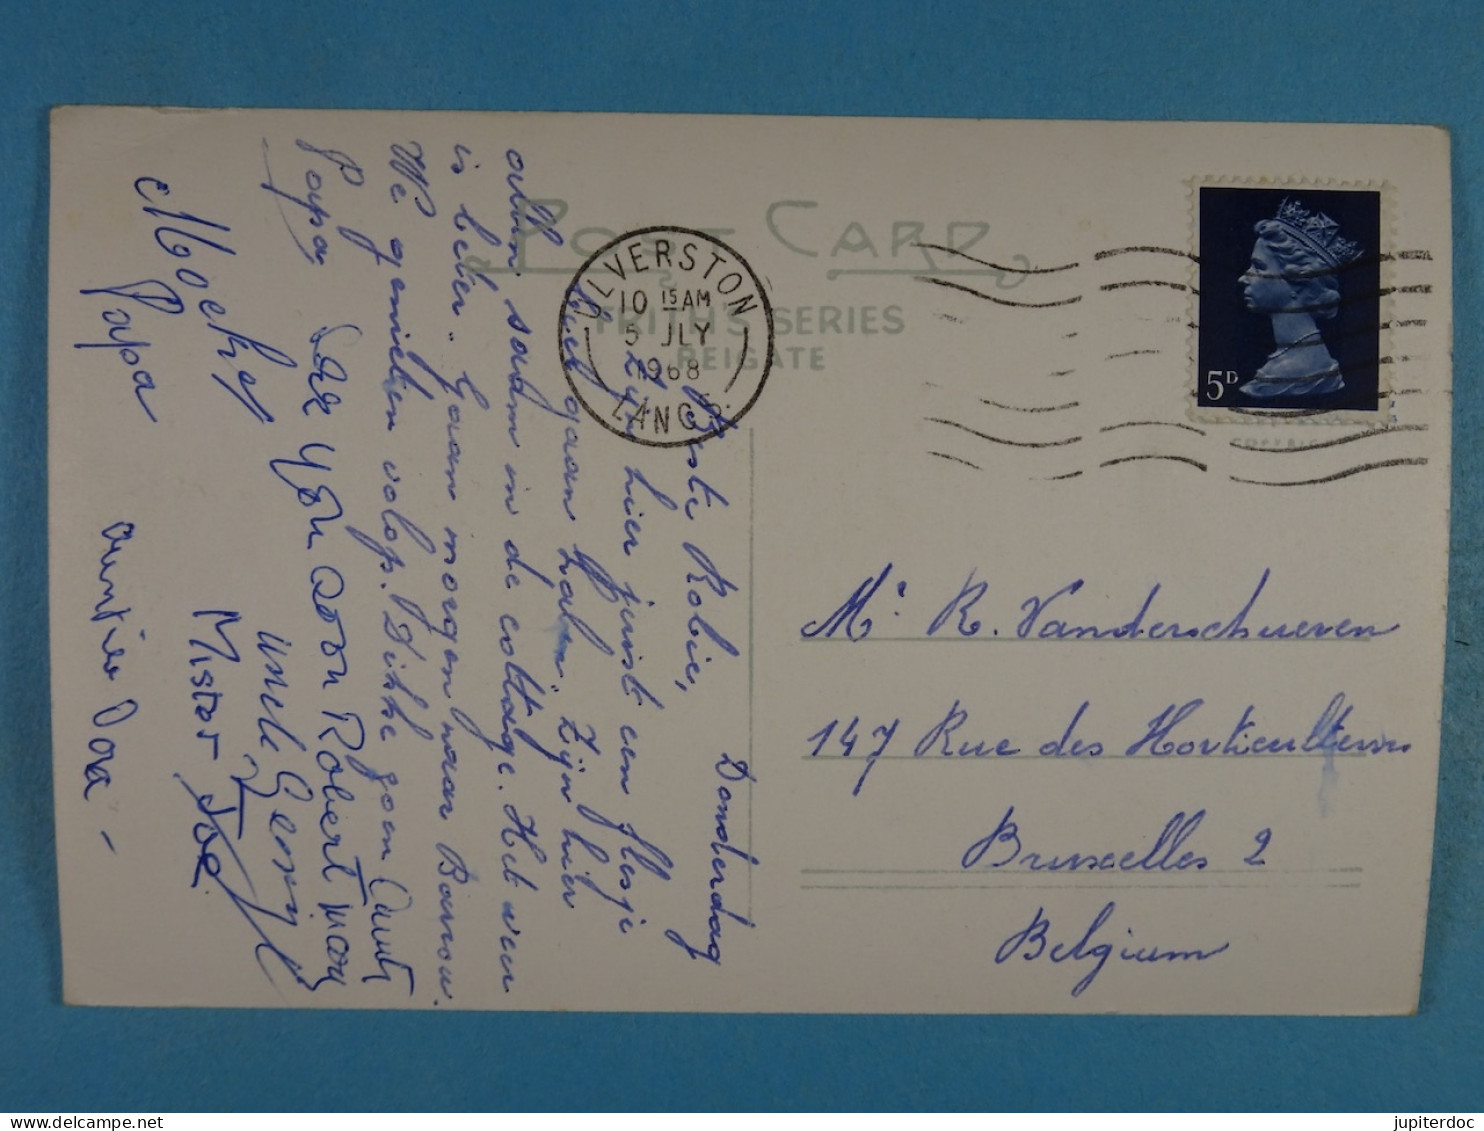 POST CARD
FRITH'S SERIES
REIGATE
ULVERSTON
10 15 AM
5 JLY
1968
LANCS.
5D
Donderdag
Beste Robie,
Zijn hier juist een flesje
gaan halen. Zijn hier
allen saam in de cottage. Het weer
is beter. Gaan morgen naar Barrow.
We genieten volop. Dikke zoen Aunt
Papa See you soon Robert
Uncle Gerry
Mister Joe
Moeke
Papa
auntie Dora -
Mr. R. Vanderschueren
147 Rue des Horticulteurs
Bruxelles 2
Belgium
jupiterdoc
delcampe.net